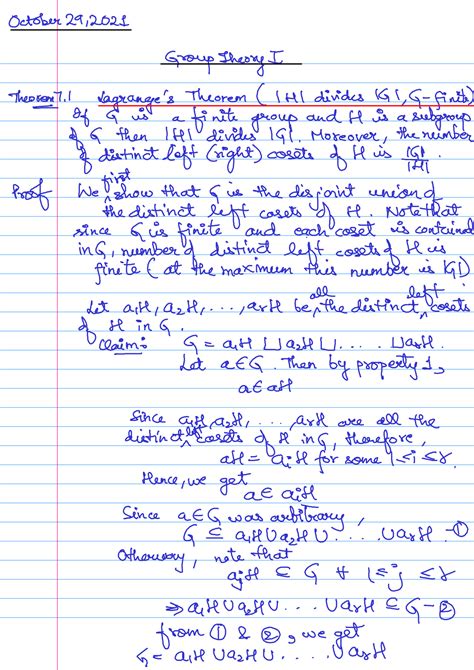 October 29, 2021
Group Theory I
Theorem 7.1 Lagrange's Theorem ( |H| divides |G|, G-finite)
If G is a finite group and H is a subgroup
of G then |H| divides |G|. Moreover, the number
of distinct left (right) cosets of H is |G|/|H|
Proof We first show that G is the disjoint union of
the distinct left cosets of H. Note that
since G is finite and each coset is contained
in G, number of distinct left cosets of H is
finite ( at the maximum this number is |G|)
Let a₁H, a₂H, . . . , aᵣH be all the distinct left cosets
of H in G.
Claim: G = a₁H ⊔ a₂H ⊔ . . . . ⊔ aᵣH.
Let a ∈ G. Then by property 1,
a ∈ aH
Since a₁H, a₂H, . . . , aᵣH are all the
distinct left cosets of H in G, therefore,
aH = aᵢH for some 1≤i≤r.
Hence, we get
a ∈ aᵢH
Since a ∈ G was arbitrary,
G ⊆ a₁H ∪ a₂H ∪ . . . . ∪ aᵣH. -①
note that
aⱼH ⊆ G ∀ 1≤j≤r
⇒ a₁H ∪ a₂H ∪ . . . ∪ aᵣH ⊆ G -②
from ① & ②, we get
G = a₁H ∪ a₂H ∪ . . . . ∪ aᵣH